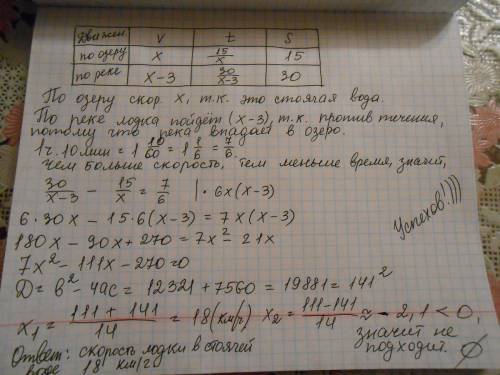 Движен. V t S
по озеру x 15/x 15
по реке x-3 30/x-3 30
По озеру скор. x, т.к. это стоячая вода.
По реке лодка пойдёт (x-3), т.к. против течения,
потому что река впадает в озеро.
1ч. 10мин = 1 10/60 = 1 1/6 = 7/6.
Чем больше скорость, тем меньше время, значит,
30/x-3 - 15/x = 7/6 | · 6x(x-3)
6·30x - 15·6(x-3) = 7x(x-3)
180x - 90x + 270 = 7x² - 21x
7x² - 111x - 270 = 0
Д = в² - 4ас = 12321 + 7560 = 19881 = 141²
x₁ = 111 + 141/14 = 18 (км/ч) x₂ = 111-141/14 ≈ - 2,1 < 0,
значит не
подходит. Ø
Ответ: скорость лодки в стоячей
воде 18 км/ч
Успехов!)))